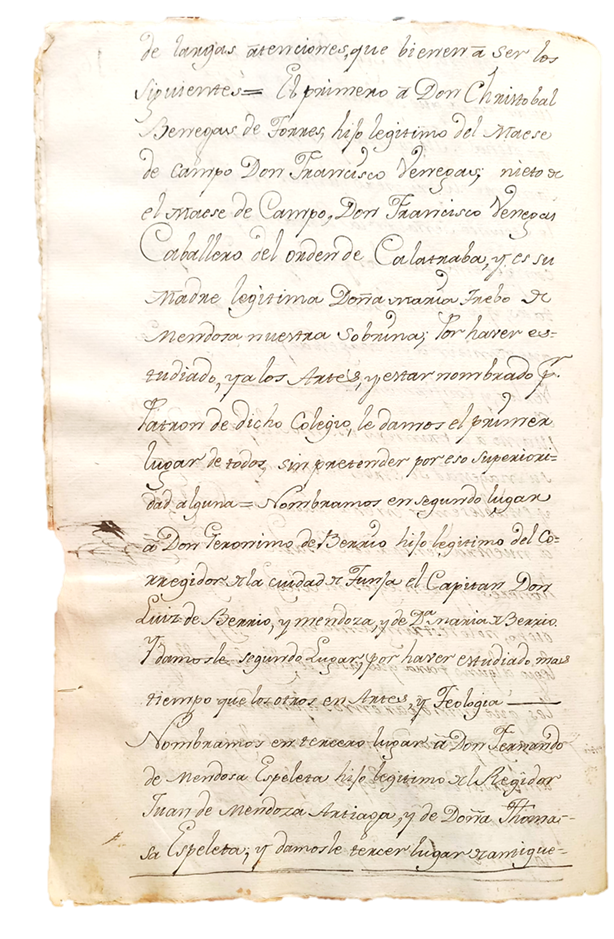 de largas atenciones, que bienen â ser los
siguientes= El primero â Don Christobal
Benegas de Torres, hijo legitimo del Maese
de campo Don Francisco Venegas; nieto de
el Maese de Campo, Don Francisco Venegas
Caballero del orden de Calatraba, y es su
Madre legitima Doña Maria Trebo de
Mendosa nuestra Sobrina; Por haver es-
tudiado, ya los Artes, y estar nombrado
Patron de dicho Colegio, le damos el primer
lugar de todos, sin pretender por eso superiori-
dad alguna= Nombramos en segundo lugar
â Don Geronimo de Berrio hijo legitimo del Co-
rregidor de la ciudad de Tunja el Capitan Don
Luiz de Berrio, y mendoza, y de Dª Maria de Berrio.
Y damosle segundo Lugar, por haver estudiado mas
tiempo que los otros en Artes, y Teologia
Nombramos en tercero lugar â Don Fernando
de Mendosa Espeleta hijo legitimo del Regidor
Juan de Mendoza Artiaga, y de Doña Thoma-
sa Espeleta; y damosle tercer lugar